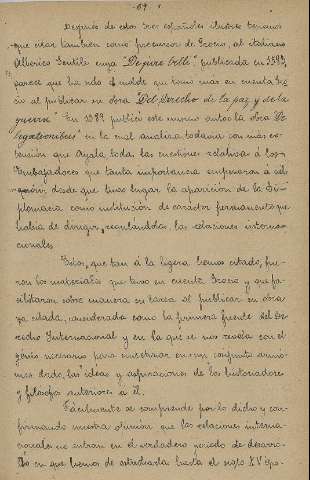 - 69 -
Después de estos tres españoles ilustres tenemos
que citar también como precursor de Grocio, al italiano
Alberico Gentile cuya "De jure belli" publicada en 1589,
parece que ha sido el molde que tomó más en cuenta Gro-
cio al publicar su obra "Del derecho de la paz y de la
guerra". En 1583 publicó este mismo autor la obra "De
legationibus" en la cual analiza todavía con más ex-
tensión que Ayala, todas las cuestiones relativas á los
Embajadores que tanta importancia empezaron a ad-
quirir desde que tuvo lugar la aparición de la Di-
plomacia como institución de carácter permanente que
había de dirigir, regulándolas, las relaciones internacio-
cionales.
Estos, que tan á la ligera hemos citado, fue-
ron los materiales que tuvo en cuenta Grocio y que fa-
cilitaron sobre manera su tarea al publicar su obra
ya citada, considerada como la primera fuente del De-
recho Internacional y en la que se nos revela con el
genio necesario para encerrar en un conjunto armó-
nico todas las ideas y aspiraciones de los historiadores
y filósofos anteriores a él.
Fácilmente se comprende por lo dicho y con-
firmando nuestra opinión que las relaciones interna-
cionales no entran en el verdadero período de desarro-
llo en que hemos de estudiarla hasta el siglo XV épo-